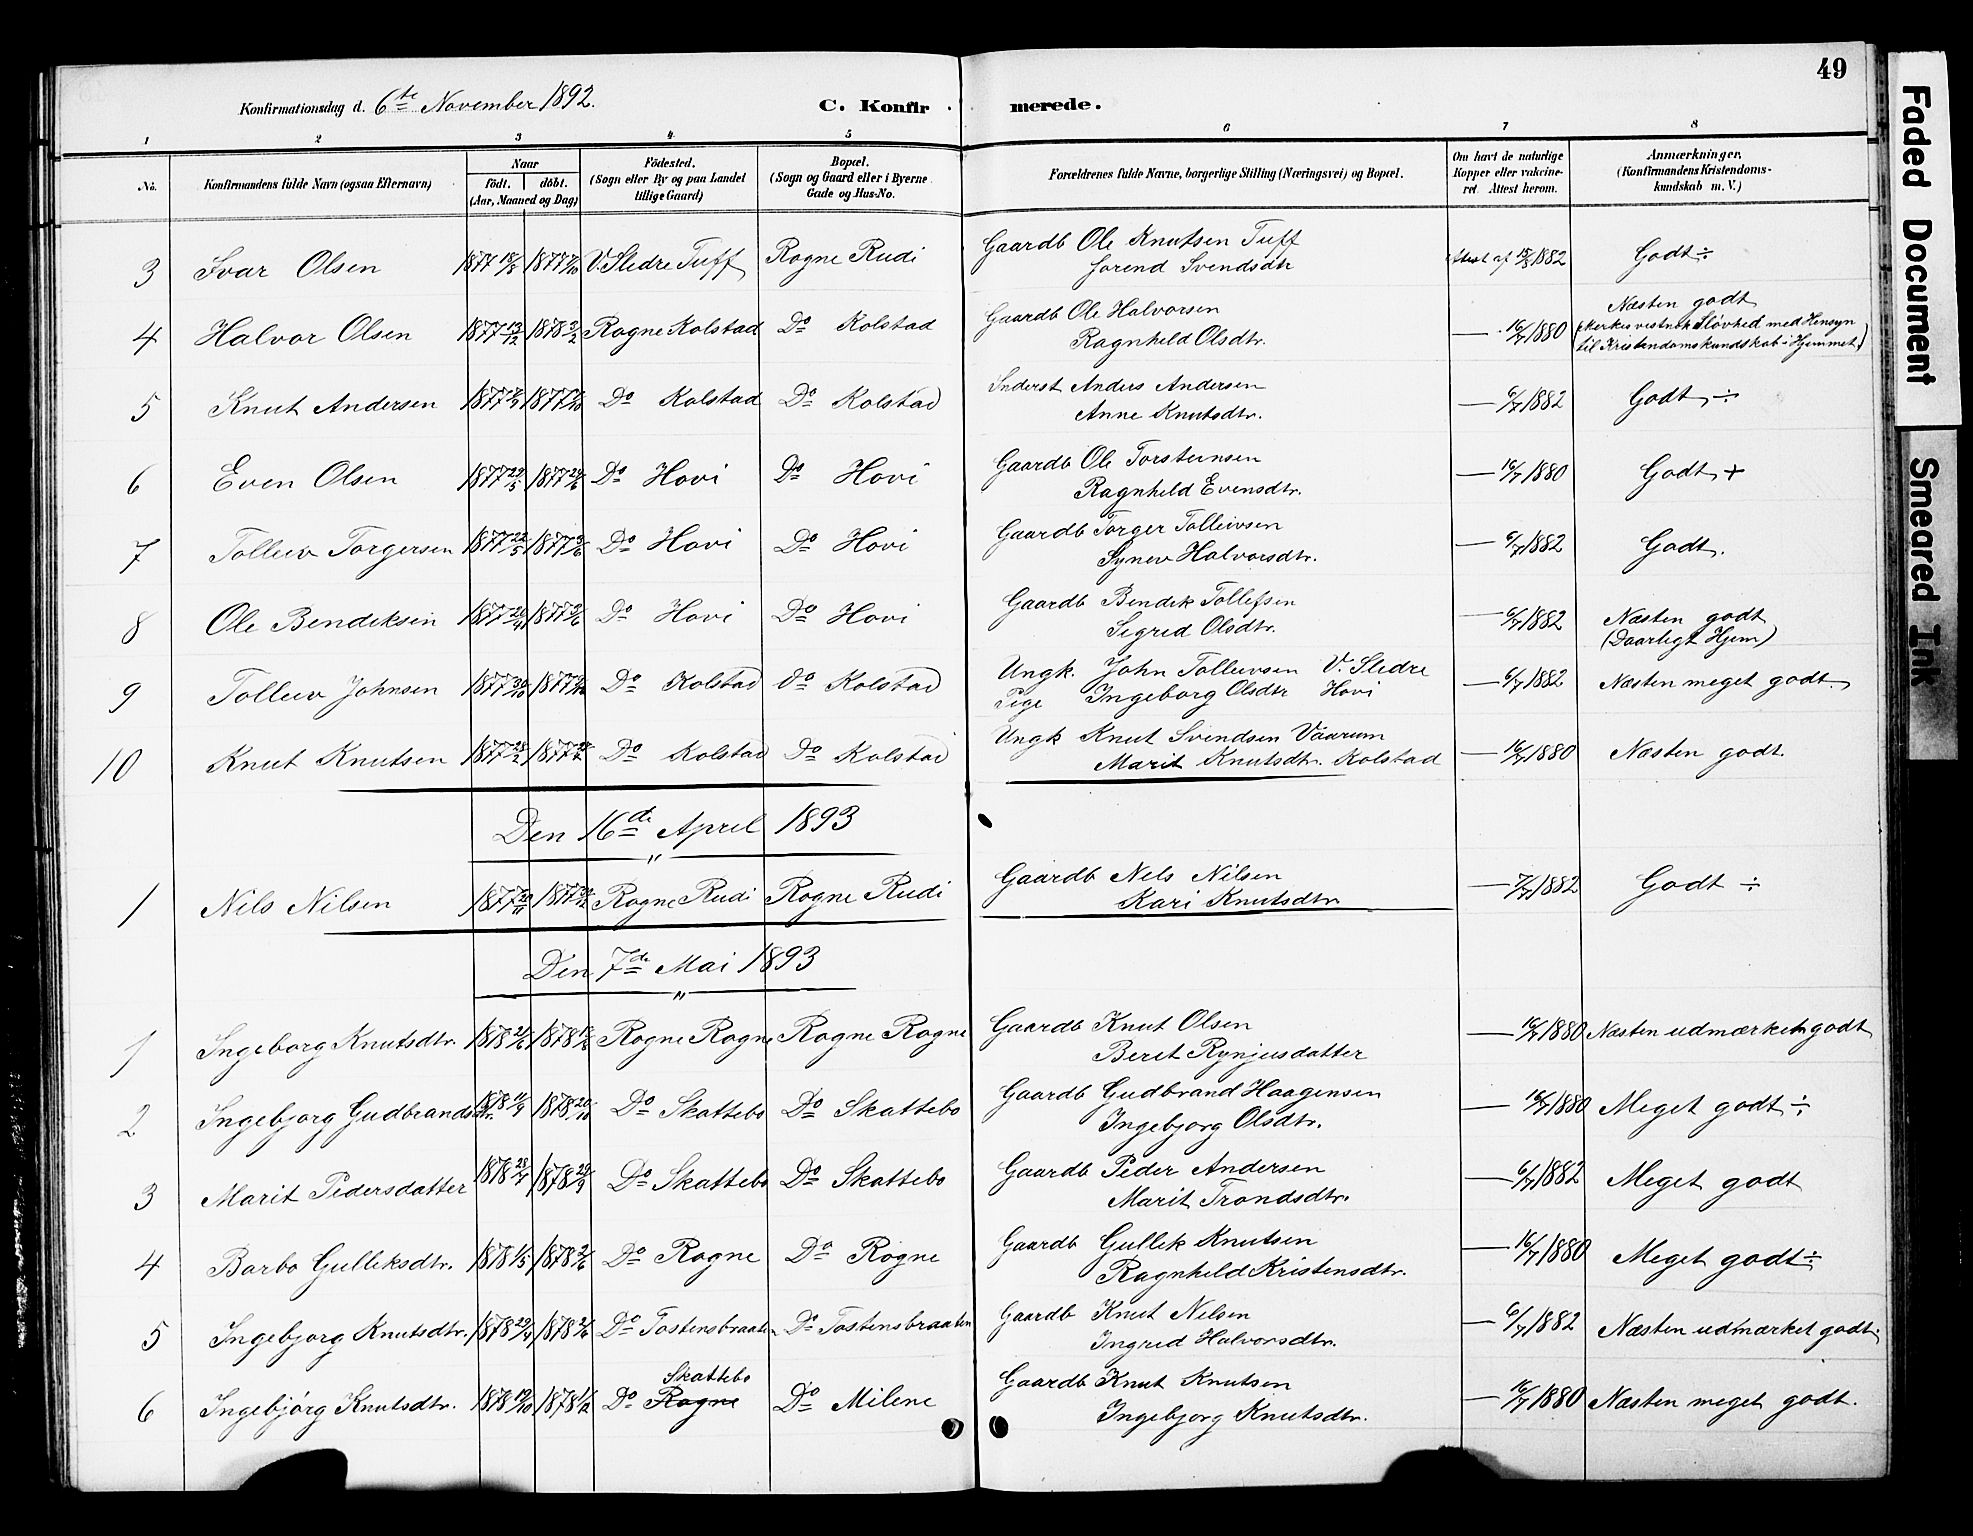 49
Konfirmationsdag d. 6te November 1892. C. Konfir merede.
1 2 3 4 5 6 7 8
No. Konfirmandens fulde Navn (ogsaa Efternavn) Naar födt. döbt. (Aar, Maaned og Dag) Födested. (Sogn eller By og paa Landet tillige Gaard) Bopæl. (Sogn og Gaard eller i Byerne Gade og Hus-No. Forældrenes fulde Navne, borgerlige Stilling (Næringsvei) og Bopæl. Om havt de naturlige Kopper eller vakcineret. Attest herom. Anmærkninger. (Konfirmandens Kristendomskundskab m. V.)
3 Ivar Olsen 1877 1877 V. Slidre Tuff Rogne Rudi Gaardb Ole Knutsen Tuff Attest af 1882 Godt ÷
Jorend Svendsdtr
4 Halvor Olsen 1877 13/12 1878 3/2 Rogne Kolstad Do Kolstad Gaardb Ole Halvorsen — 16/7 1880 Næsten godt
Ragnheld Olsdtr. Sløvhed med Hensyn
til Kristendomskundskab i Hjemmet)
5 Knut Andersen 1877 1877 Do Kolstad Do Kolstad Inderst Anders Andersen — 6/7 1882 Godt ÷
Anne Knutsdtr.
6 Even Olsen 1877 1877 Do Hovi Do Hovi Gaardb Ole Torsteinsen — 16/7 1880 Godt +
Ragnheld Evensdtr.
7 Tolleiv Torgersen 1877 22/5 1877 3/6 Do Hovi Do Hovi Gaardb Torger Tolleivsen — 6/7 1882 Godt.
Synev Halvorsdtr.
8 Ole Bendiksen 1877 1877 Do Hovi Do Hovi Gaardb Bendik Tollefsen — 6/7 1882 Næsten godt
Sigrid Olsdtr. (Daarligt Hjem)
9 Tolleiv Johnsen 1877 30/10 1877 Do Kolstad do Kolstad Ungk. John Tolleivsen V. Slidre — 6/7 1882 Næsten meget godt.
Pige Ingeborg Olsdtr Hovi
10 Knut Knutsen 1877 1877 Do Kolstad Do Kolstad Ungk Knut Svendsen Vaarum — 16/7 1880 Næsten godt.
Marit Knutsdtr. Kolstad
Den 16de April 1893
"
1 Nils Nilsen 1877 1877 Rogne Rudi Rogne Rudi Gaardb Nels Nilsen — 7/7 1882 Godt ÷
Kari Knutsdtr
Den 7de Mai 1893
"
1 Ingeborg Knutsdtr. 1878 1878 Rogne Rogne Rogne Rogne Gaardb Knut Olsen — 16/7 1880 Næsten udmærket godt
Beret Rynjusdatter
2 Ingebjorg Gudbrandsdtr. 1878 11/9 1878 20/10 Do Skattebo Do Skattebo Gaardb Gudbrand Haagensen — 16/7 1880 Meget godt ÷
Ingebjorg Olsdtr.
3 Marit Pedersdatter 1878 1878 Do Skattebo Do Skattebo Gaardb Peder Andersen — 6/7 1882 Meget godt
Marit Trondsdtr.
4 Barbo Gulleksdtr. 1878 1/5 1878 2/6 Do Rogne Do Rogne Gaardb Gullek Knutsen — 16/7 1880 Meget godt ÷
Ragnheld Kristensdtr.
5 Ingebjorg Knutsdtr. 1878 29/4 1878 2/6 Do Tostensbraaten Do Tostensbraaten Gaardb Knut Nelsen — 6/7 1882 Næsten udmærket godt.
Ingrid Halvorsdtr.
6 Ingebjörg Knutsdtr. 1878 19/10 1878 1/12 Do Rogne Skattebo Do Milene Gaardb Knut Knutsen — 16/7 1880 Næsten meget godt.
Ingebjorg Knutsdtr.
Faded Document
Smeared Ink